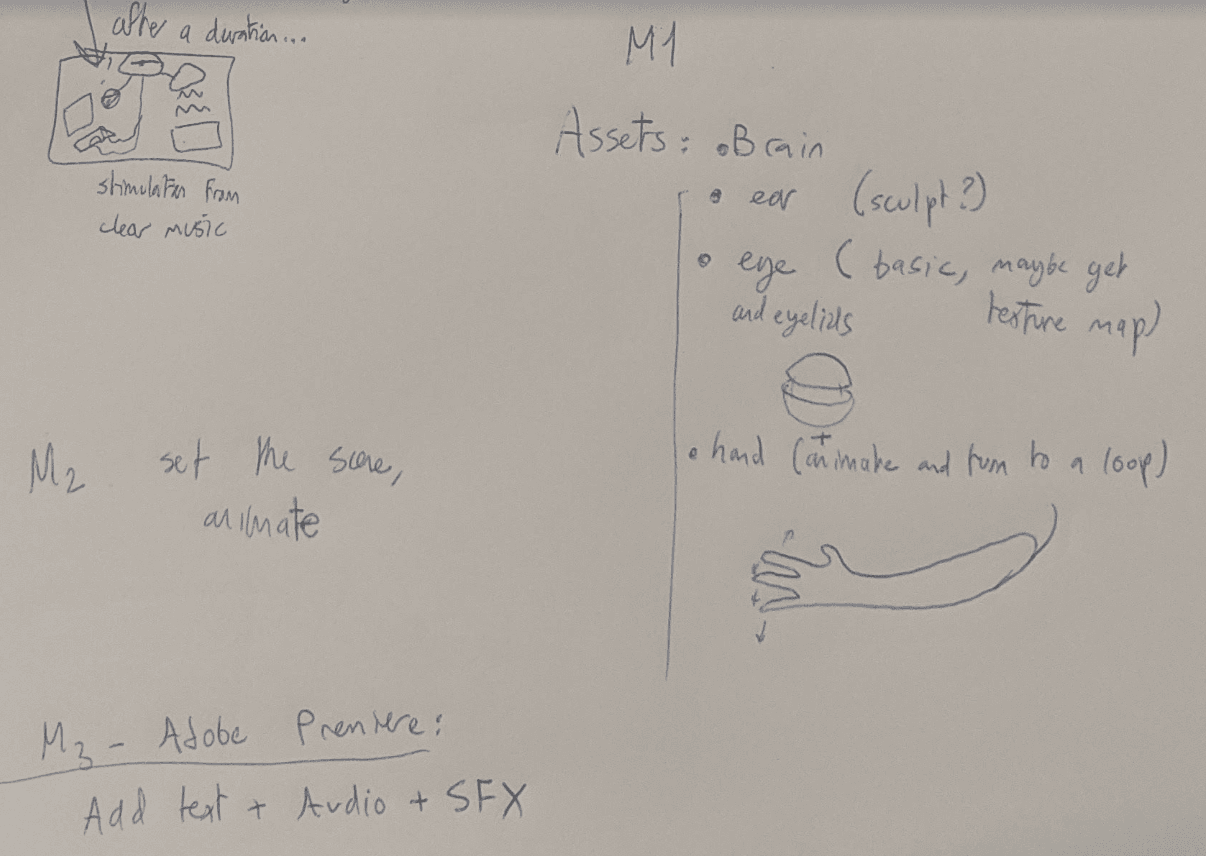 after a duration...
stimulation from
clear music
M1
Assets: • Brain
• ear (sculpt?)
• eye (basic, maybe get
and eyelids texture map)
• hand (animate and turn to a loop)
M2 set the scene,
animate
M3 - Adobe Premiere:
Add text + Audio + SFX